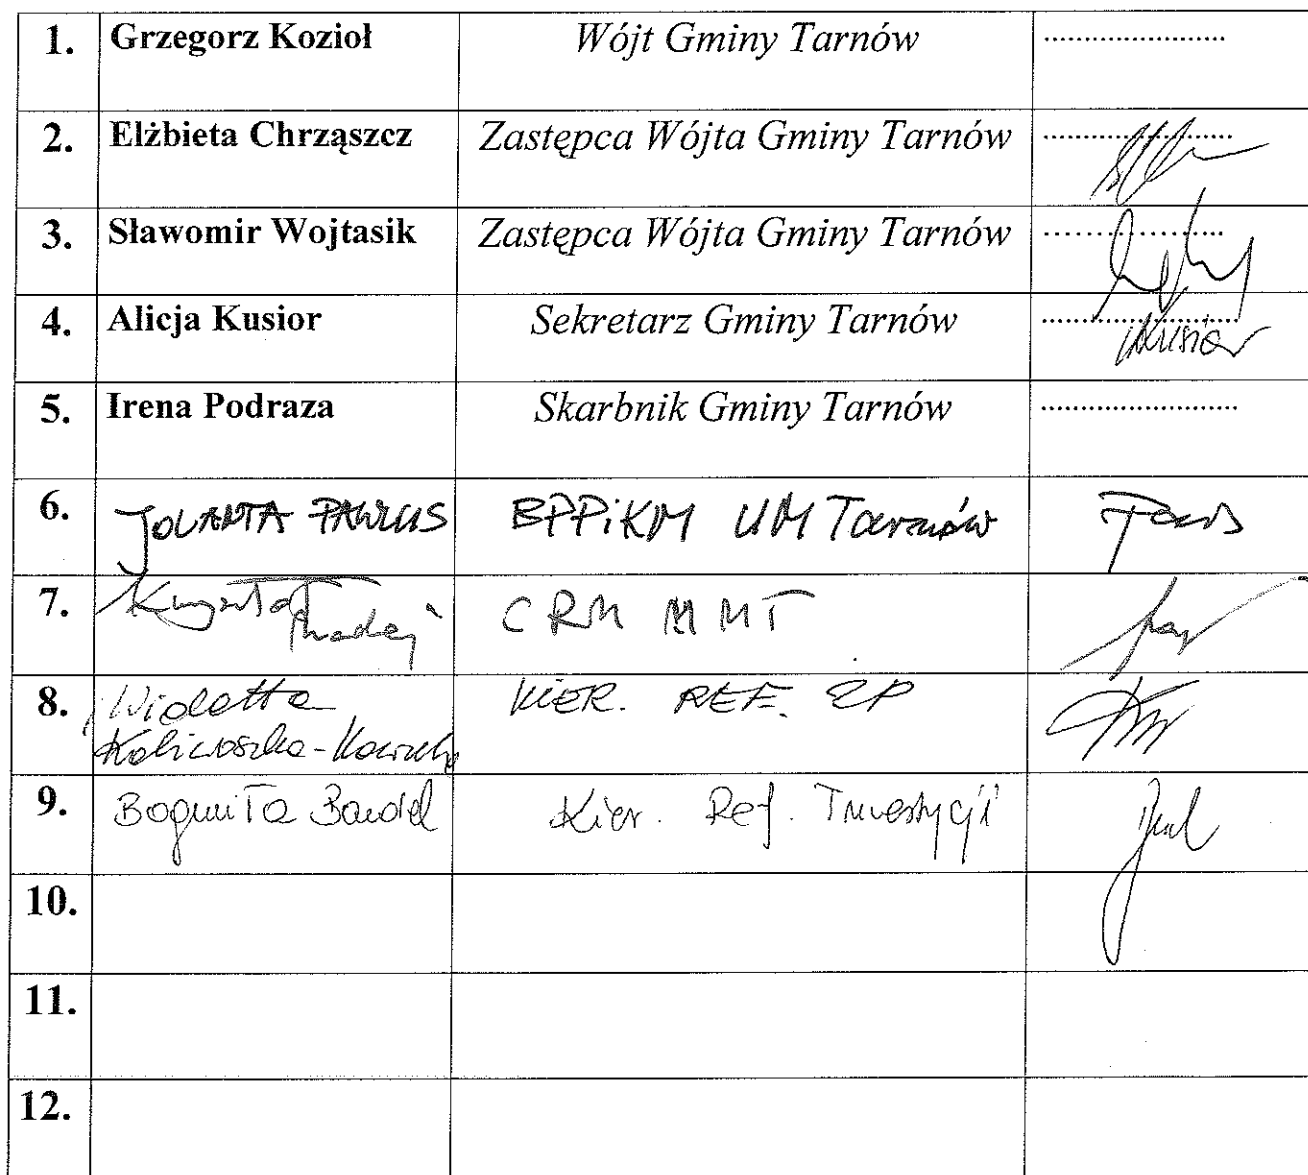 1. Grzegorz Kozioł Wójt Gminy Tarnów ......................
2. Elżbieta Chrząszcz Zastępca Wójta Gminy Tarnów ......................
3. Sławomir Wojtasik Zastępca Wójta Gminy Tarnów ......................
4. Alicja Kusior Sekretarz Gminy Tarnów ...................... Kusior
5. Irena Podraza Skarbnik Gminy Tarnów ......................
6. JOLANTA PAWLUS BPPiKM UM Tarnów
7. Krzysztof Madej CRM MMT
8. Wioletta KIER. REF. ZP
9. Bogumiła Kier. Ref. Inwestycji
10.
11.
12.